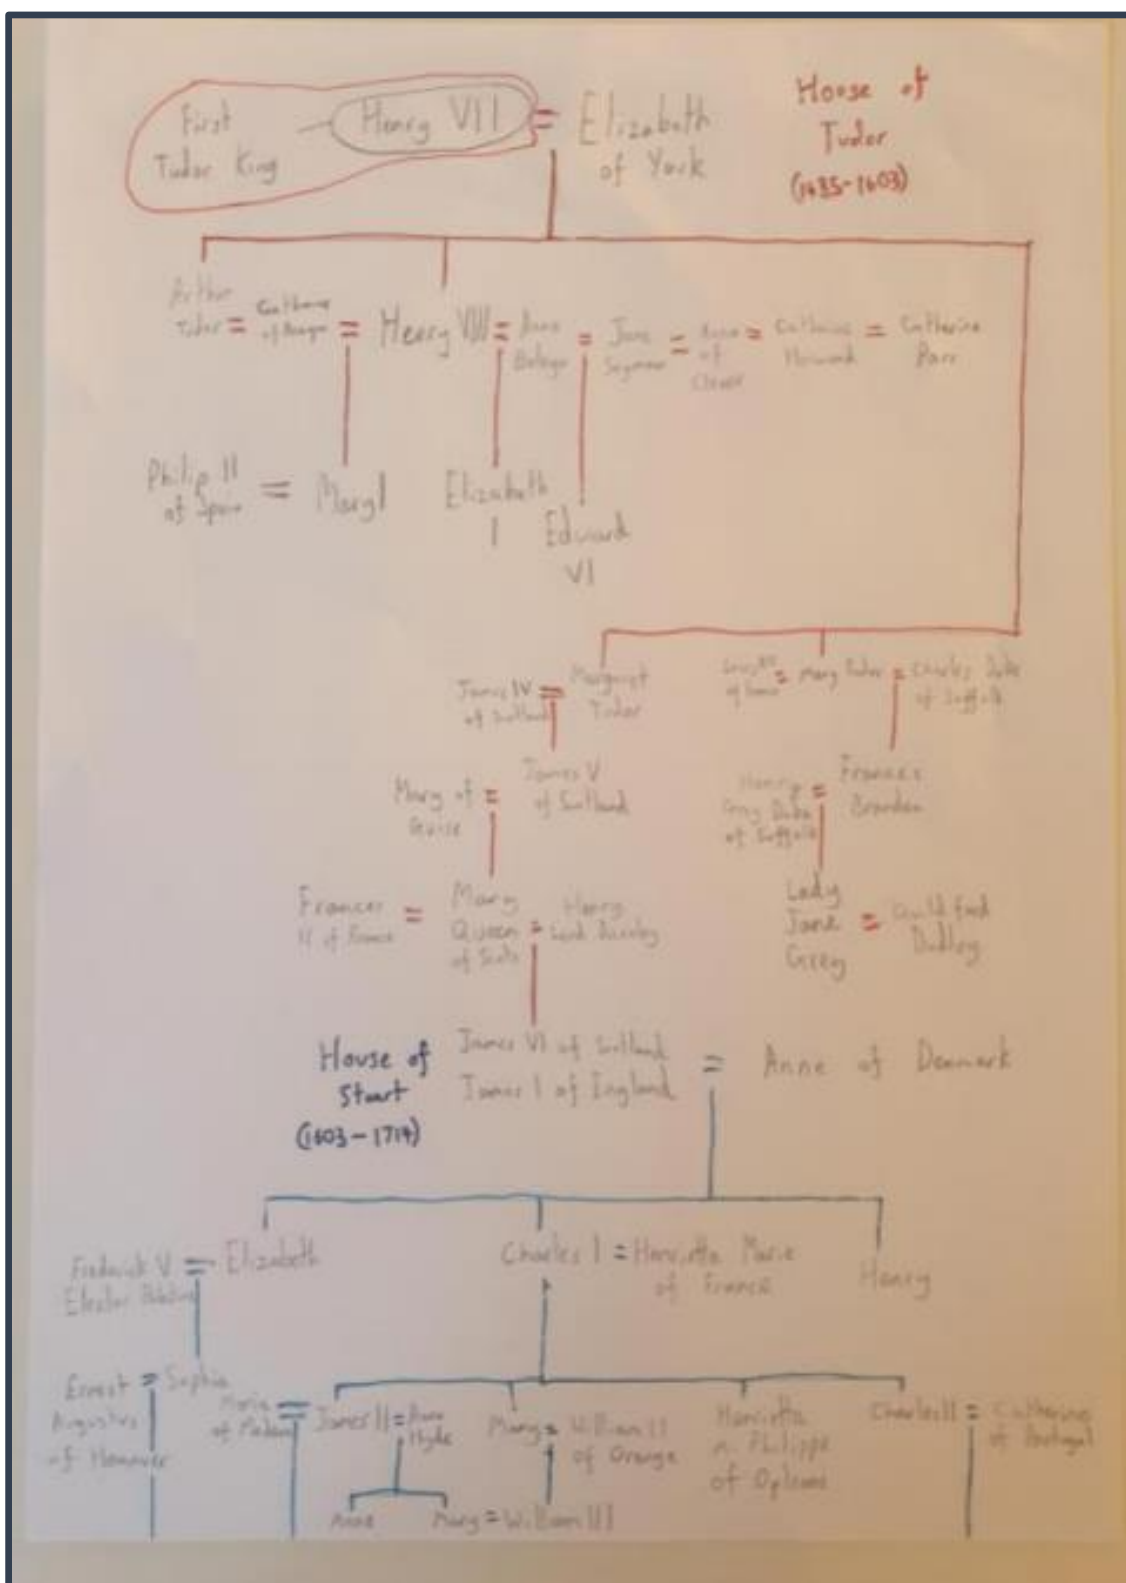 First
Tudor King
Henry VII = Elizabeth
of York
House of
Tudor
(1485-1603)
Arthur
Tudor = Catherine
of Aragon = Henry VIII = Anne
Boleyn = Jane
Seymour = Anne
of
Cleves = Catherine
Howard = Catherine
Parr
Philip II
of Spain = Mary I
Elizabeth
I
Edward
VI
James IV
of Scotland = Margaret
Tudor
Louis XII
of France = Mary Tudor = Charles Duke
of Suffolk
Mary of
Guise = James V
of Scotland
Henry
Grey Duke
of Suffolk = Frances
Brandon
Frances
II of France = Mary
Queen
of Scots = Henry
Lord Darnley
Lady
Jane
Grey = Guildford
Dudley
House of
Stuart
(1603-1714)
James VI of Scotland
James I of England = Anne of Denmark
Frederick V
Elector Palatine = Elizabeth
Charles I = Henrietta Marie
of France
Henry
Ernest
Augustus
of Hanover = Sophia
Maria
of Modena = James II = Anne
Hyde
Mary = William II
of Orange
Henrietta
m. Philippe
of Orleans
Charles II = Catherine
of Portugal
Anne
Mary = William III